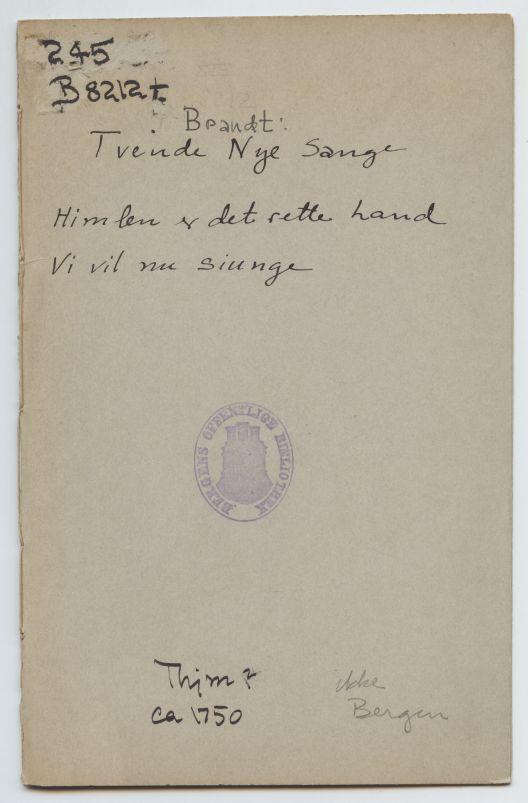 245
B8212t
Brandt:
Tvende Nye Sange
Himlen er det rette Land
Vi vil nu siunge
BERGENS OFFENTLIGE BIBLIOTHEK
Thjm?
ca 1750
ikke
Bergen